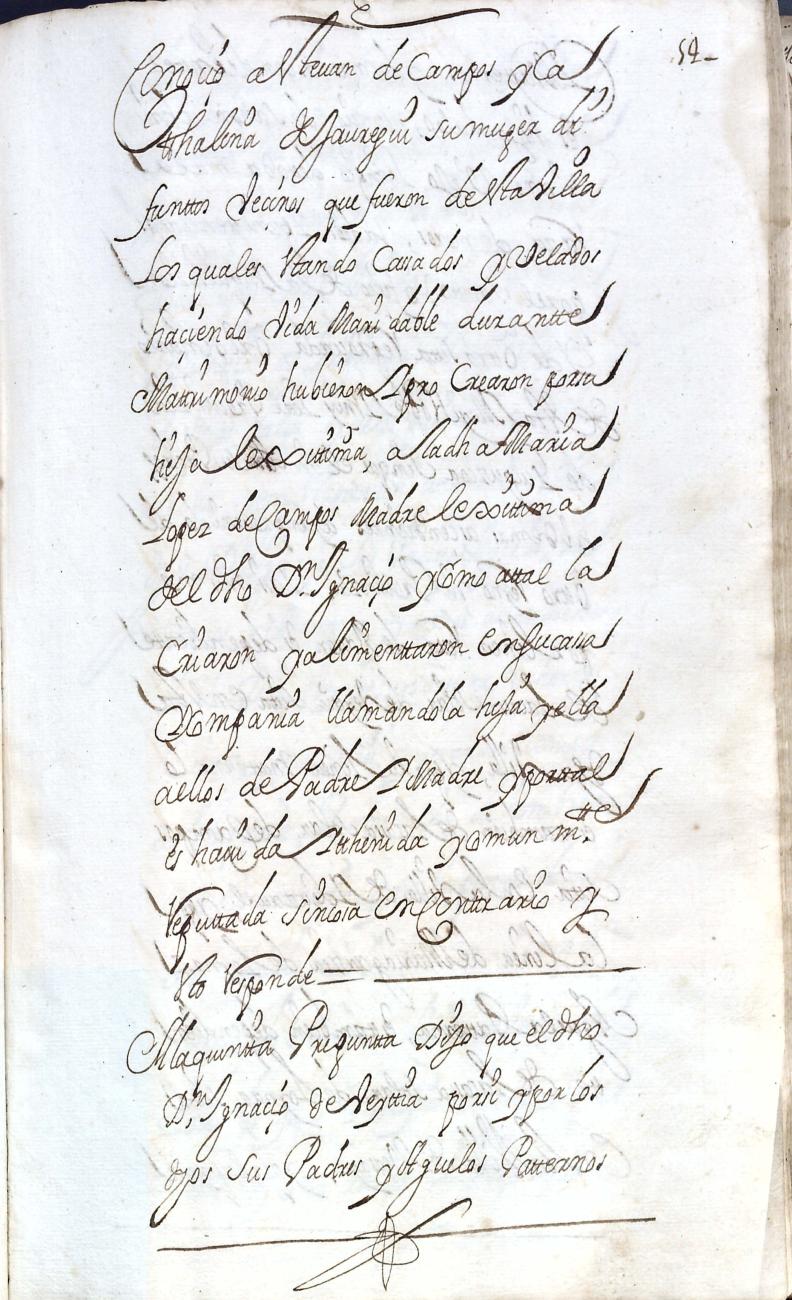 54
Conoció a Stevan de Campos y Ca
tthalina de Jauregui su muger di
funttos Vecinos que fueron de Sta Villa
Los quales Stando Casados y Velados
haciendo Vida Maridable durantte
Matrimonio hubieron Y pro Crearon por su
hija lexittima, a la dha Maria
Lopez de Campos Madre lexittima
del dho Dn Ignacio y Como a ttal la
Criaron y alimenttaron En su casa
Y Compania llamandola hija y ella
a ellos de Padre Y Madre y por ttal
es havida Y thenida y Comun mtte
Reputtada sin cosa En Conttrario Y
Sto Responde
A la quintta Preguntta Dijo que el dho
Dn Ignacio de Veyttia por si y por los
dhos sus Padres y Aguelos Patternos